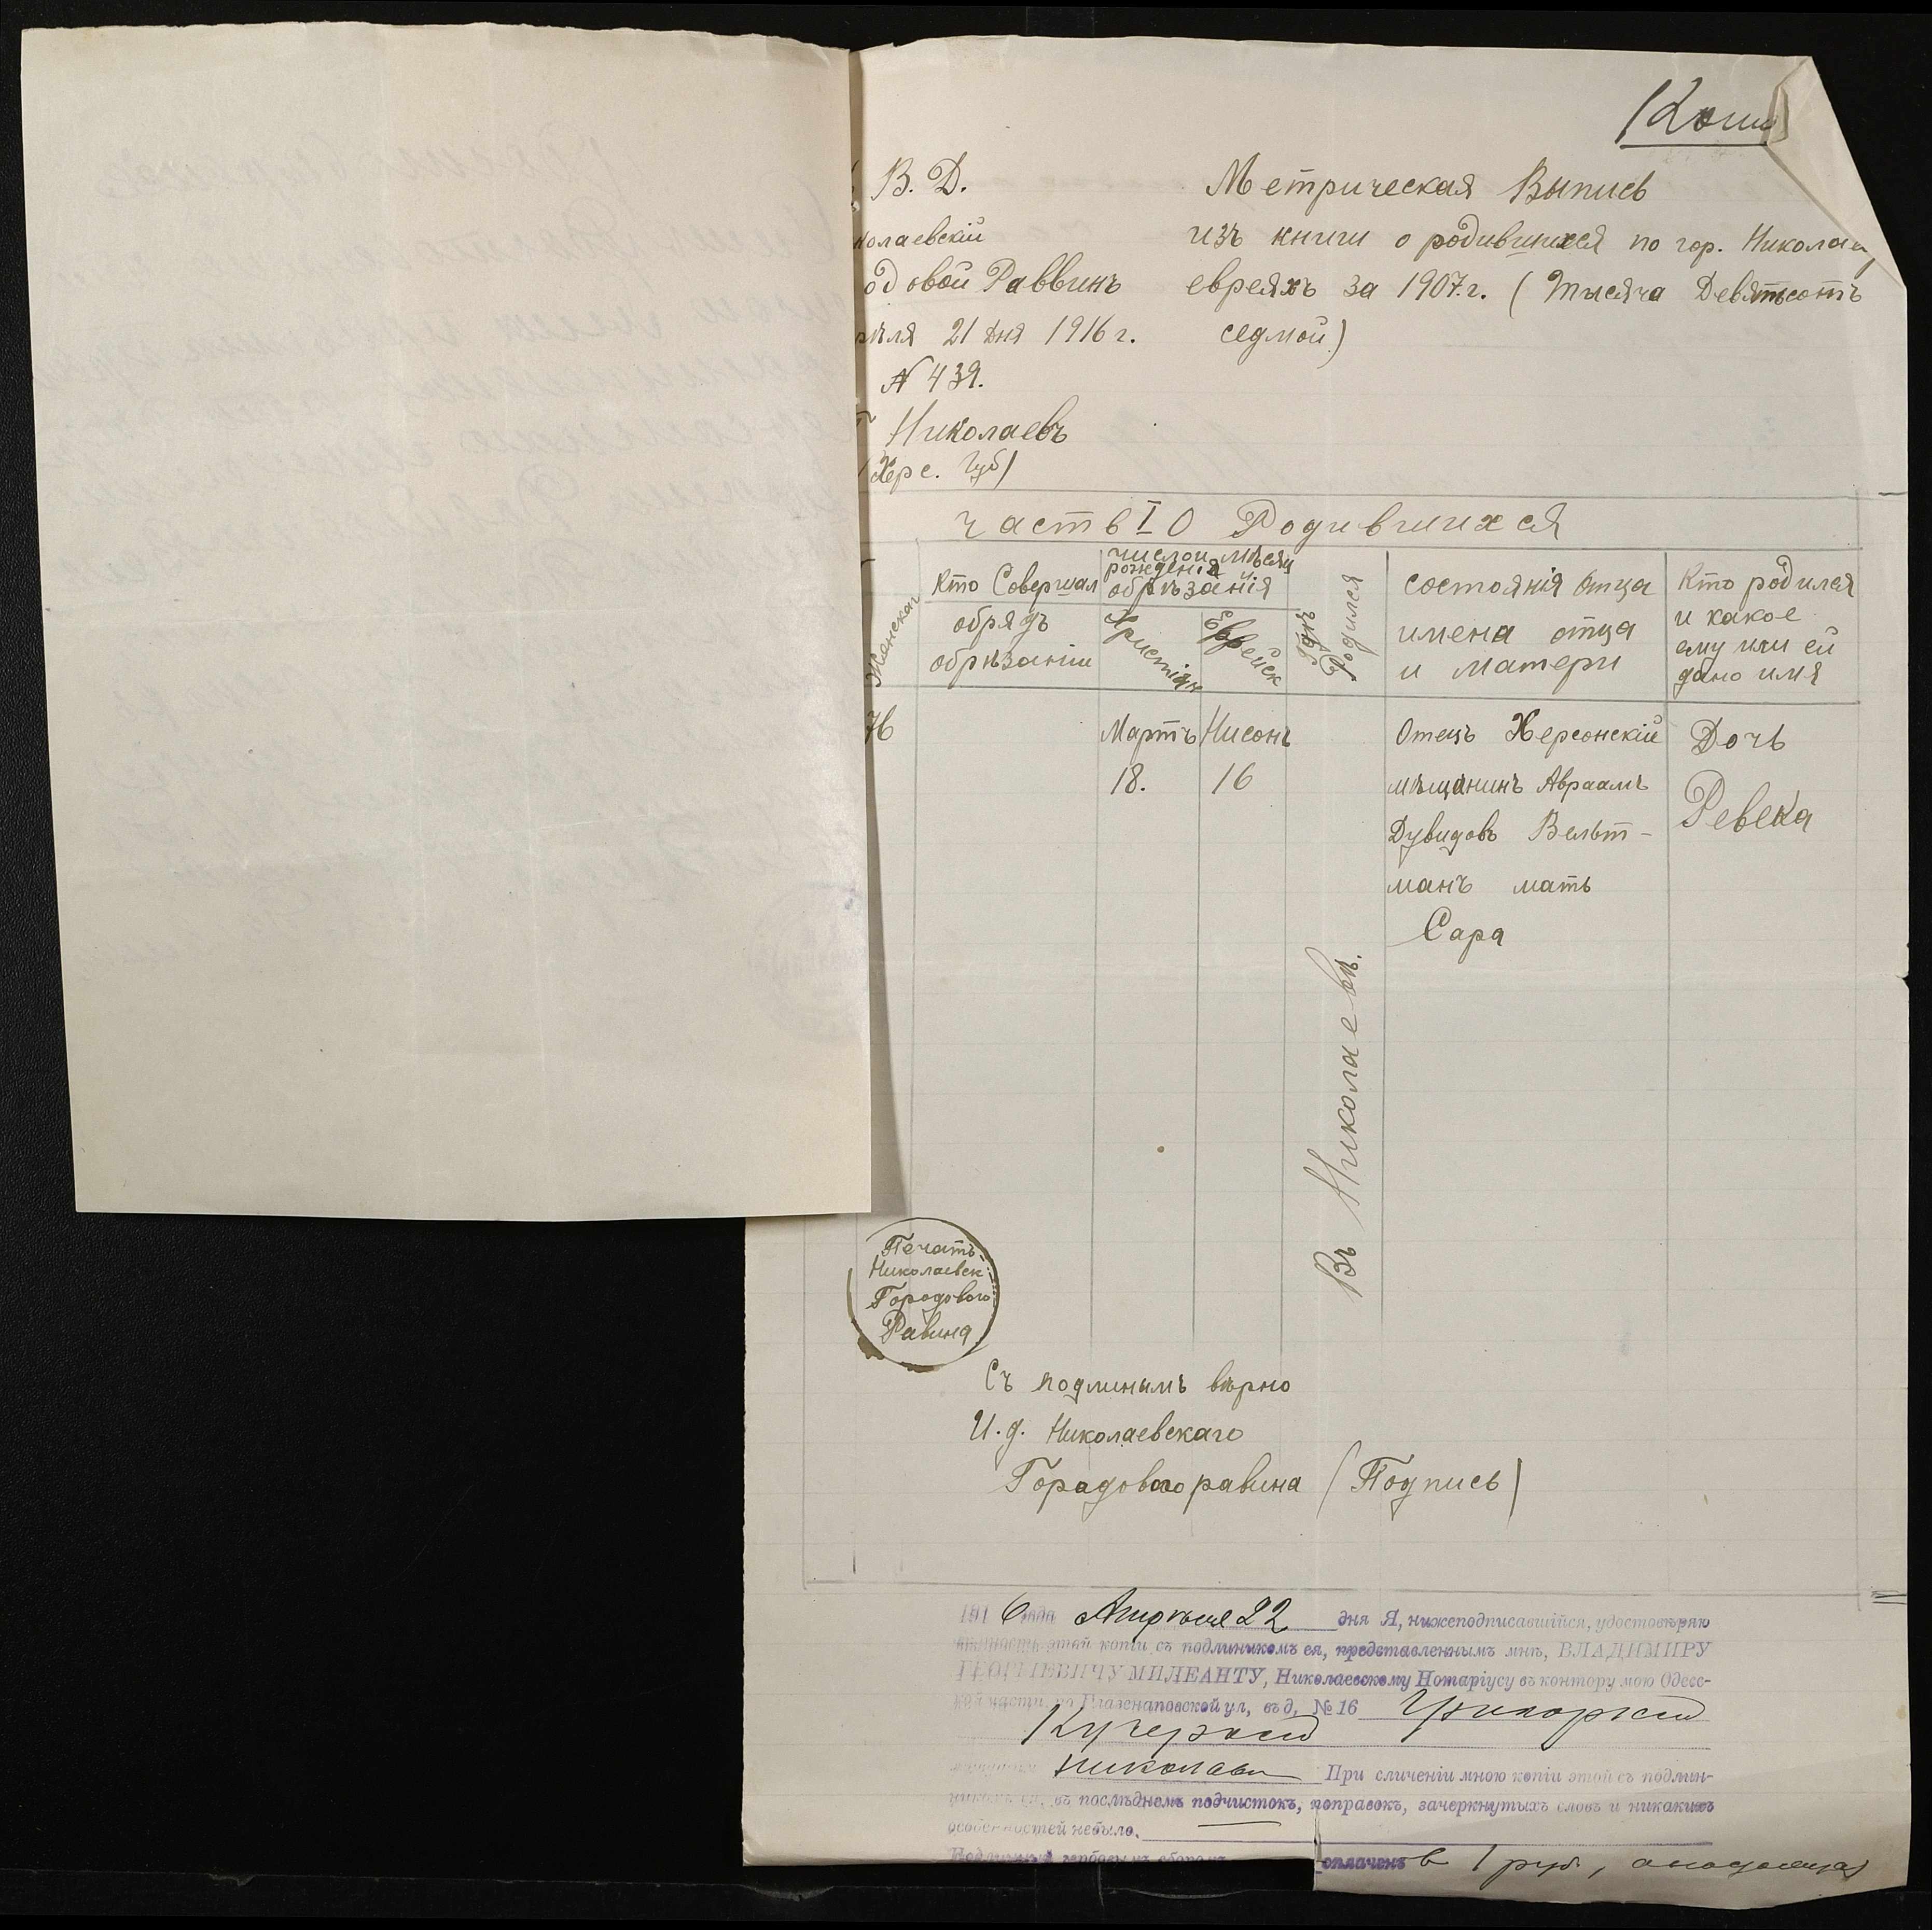 (Копія)
В. Д.
колаевскій
одовой Раввинъ
рѣля 21 дня 1916 г.
N 439.
Николаевъ
(Херс. Губ)
Метрическая Выпись
изъ книги о родившихся по гор. Николаев
евреяхъ за 1907.г. (Тысяча Девятьсотъ
седмой)
Часть I О Родившихся
Женскаг
Кто Совершал
обрядъ
обрѣзаніи
число и мѣсяц
рожденія и
обрѣзанія
Христіан
Еврейск
Гдѣ
Родился
состоянія отца
имена отца
и матери
Кто родился
и какое
ему или ей
дано имя
76
Мартъ
18.
Нисонъ
16
Въ Николаевѣ.
Отецъ Херсонскій
мѣщанинъ Авраамъ
Дувидовъ Вельт-
манъ мать
Сара
Дочь
Ревека
Печать
Николаевск.
Городового
Равина
Съ подлинымъ вѣрно
И. д. Николаевскаго
Горадового равина (Подпись)
191 6 года Апрѣля 22 дня Я, нижеподписавшійся, удостовѣряю
вѣрность этой копіи съ подлиникомъ ея, представленнымъ мнѣ, ВЛАДИМИРУ
ГЕОРГІЕВИЧУ МИЛЕАНТУ, Николаевскому Нотаріусу въ контору мою Одесс-
кой части, по Глазенаповской ул, въ д, № 16 Григоріем
Кучерою
Николаев При сличеніи мною копіи этой съ подлин-
никомъ ея, въ послѣднемъ подчистокъ, поправокъ, зачеркнутыхъ словъ и никакихъ
особенностей небыло.
Подлинный гербовымъ сборомъ оплаченъ в 1 руб.,